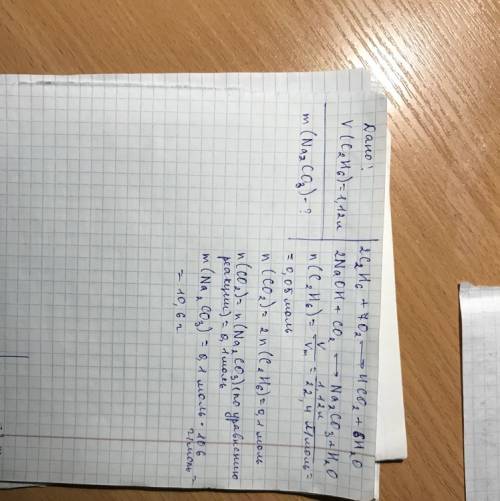 Дано:
V(C₂H₆)=1,12л
m(Na₂CO₃)-?
2C₂H₆ + 7O₂ → 4CO₂ + 6H₂O
2NaOH + CO₂ → Na₂CO₃ + H₂O
n(C₂H₆) = V/Vm = 1,12л/22,4 л/моль =
= 0,05 моль
n(CO₂) = 2n(C₂H₆) = 0,1 моль
n(CO₂) = n(Na₂CO₃) (по уравнению
реакции) = 0,1 моль
m(Na₂CO₃) = 0,1 моль · 106 г/моль =
= 10,6 г